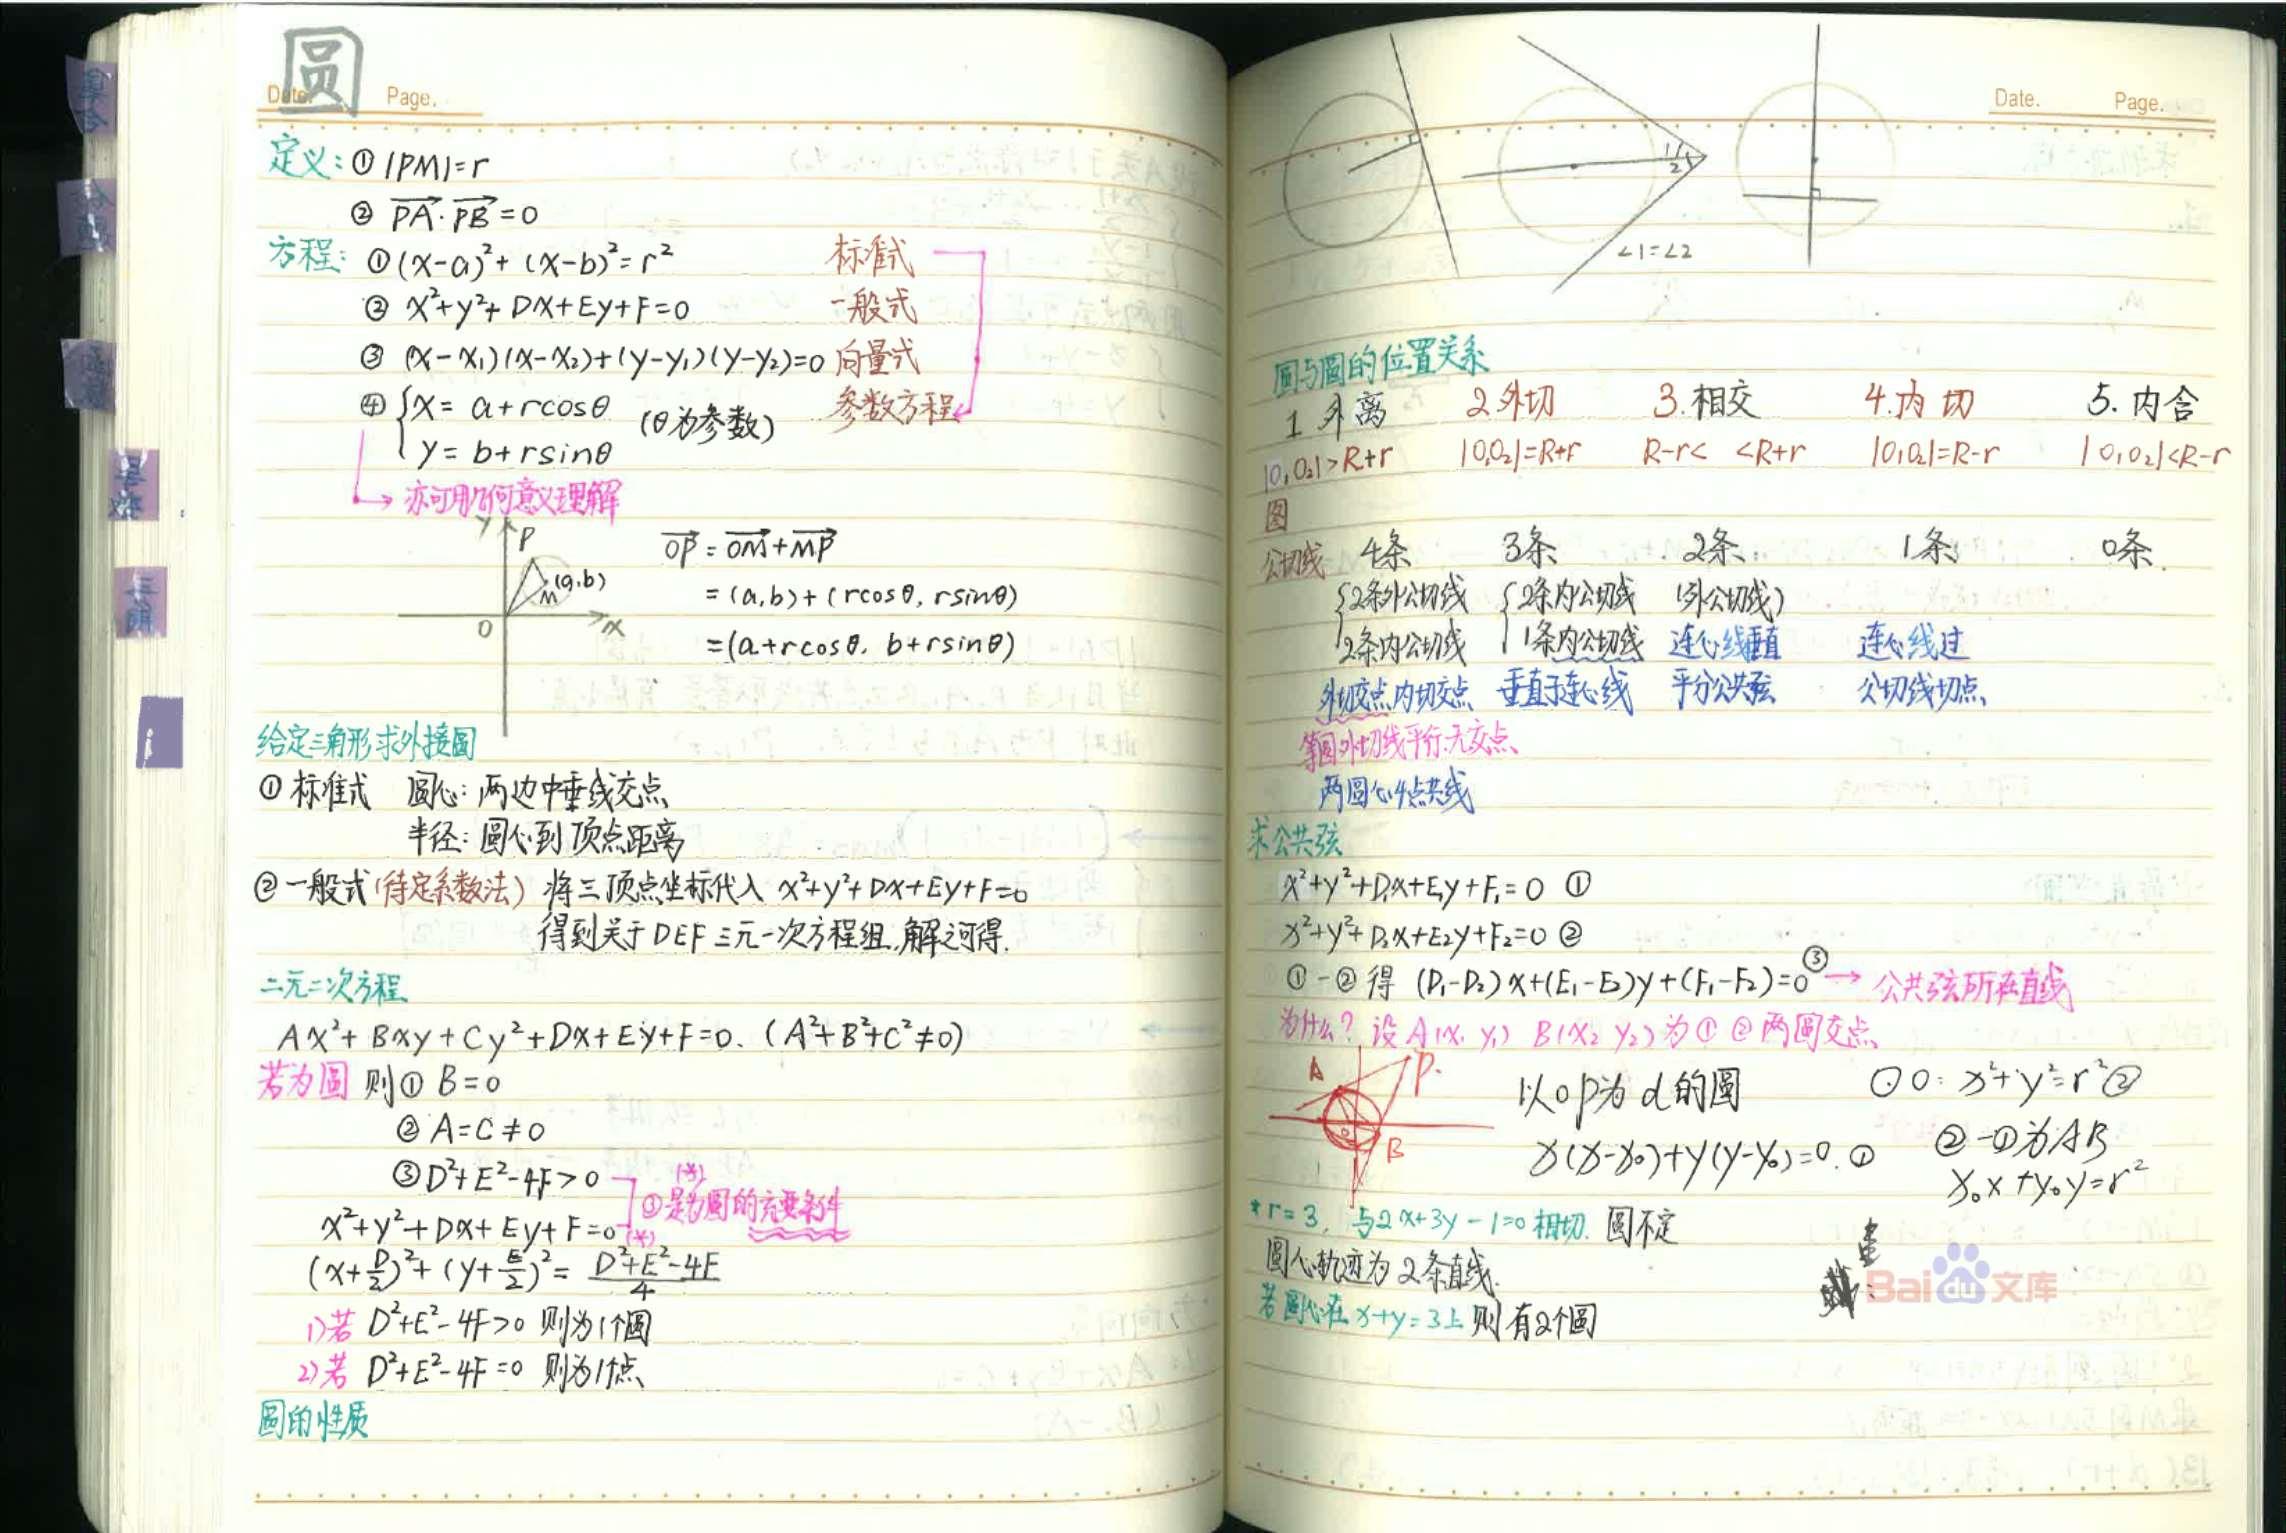 圆
Date. Page.
定义: ① |PM|=r
② PA·PB=0
方程: ①(x-a)²+(x-b)²=r² 标准式
② x²+y²+Dx+Ey+F=0 一般式
③ (x-x₁)(x-x₂)+(y-y₁)(y-y₂)=0 向量式
④ {x=a+rcosθ (θ为参数) 参数方程
y=b+rsinθ
亦可用几何意义理解
y P
M (a,b)
O x
OP=OM+MP
=(a,b)+(rcosθ, rsinθ)
=(a+rcosθ, b+rsinθ)
给定三角形求外接圆
① 标准式 圆心: 两边中垂线交点
半径: 圆心到顶点距离
② 一般式(待定系数法) 将三顶点坐标代入 x²+y²+Dx+Ey+F=0
得到关于DEF三元一次方程组,解之可得.
二元二次方程
Ax²+Bxy+Cy²+Dx+Ey+F=0. (A²+B²+C²≠0)
若为圆 则① B=0
② A=C≠0
③D²+E²-4F>0 (*)
③是为圆的充要条件
x²+y²+Dx+Ey+F=0 (*)
(x+D/2)²+(y+E/2)²=(D²+E²-4F)/4
1)若 D²+E²-4F>0 则为1个圆
2)若 D²+E²-4F=0 则为1个点
圆的性质
Date. Page.
1 2
∠1=∠2
圆与圆的位置关系
1 外离 2.外切 3.相交 4.内切 5.内含
|O₁O₂|>R+r |O₁O₂|=R+r R-r< <R+r |O₁O₂|=R-r |O₁O₂|<R-r
图
公切线 4条 3条 2条 1条 0条.
{2条外公切线 {2条内公切线 (外公切线)
2条内公切线 1条内公切线 连心线垂直 连心线过
外切交点内切交点 垂直于连心线 平分公共弦 公切线切点
等圆外切线平行.无交点
两圆心4点共线
求公共弦
x²+y²+D₁x+E₁y+F₁=0 ①
x²+y²+D₂x+E₂y+F₂=0 ②
①-②得 (D₁-D₂)x+(E₁-E₂)y+(F₁-F₂)=0 ③ → 公共弦所在直线
为什么? 设A(x₁ y₁) B(x₂ y₂)为①②两圆交点
A P.
O B
以OP为d的圆 ⊙O: x²+y²=r² ②
x(x-x₀)+y(y-y₀)=0. ① ②-①为AB
x₀x+y₀y=r²
*r=3, 与2x+3y-1=0相切. 圆不定
圆心轨迹为2条直线.
若圆心在x+y=3上 则有2个圆
Baidu文库